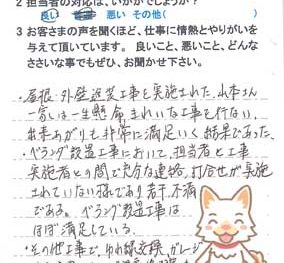 2 担当者の対応は、いかがでしょうか？
良い 悪い その他( )
3 お客さまの声を聞くほど、仕事に情熱とやりがいを
与えて頂いています。 良いこと、悪いこと、どんな
ささいな事でもぜひ、お聞かせ下さい。
・屋根・外壁塗装工事を実施された、山本さん
一生懸命きれいな工事を行ない、
出来あがりも非常に満足いく結果であった。
・ベランダ設置工事において、担当者と工事
実施者との間で充分な連絡、打合せが実施
されていない様であり若干不満
である。ベランダ設置工事は
ほぼ満足している。
・その他工事で、ゆれ線交換、ガレージ